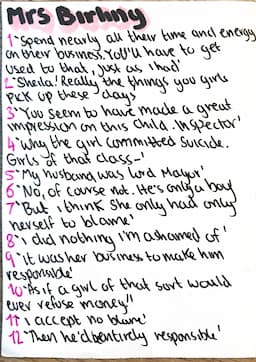 Mrs Birling
1 "Spend nearly all their time and energy
on their business. You'll have to get
used to that, just as i had'
2 'Sheila! Really the things you girls
pick up these days
3 'You seem to have made a great
impression on this child. Inspector'
4 'Why the girl committed suicide.
Girls of that class-'
5 'My husband was lord Mayor'
6 'No, of course not. He's only a boy
7 'But i think she only had only
herself to blame'
8 'i did nothing i'm ashamed of'
9 'it was her business to make him
responsible'
10 'As if a girl of that sort would
ever refuse money'
11 'i accept no blame'
12 'Then he'd entirely responsible'